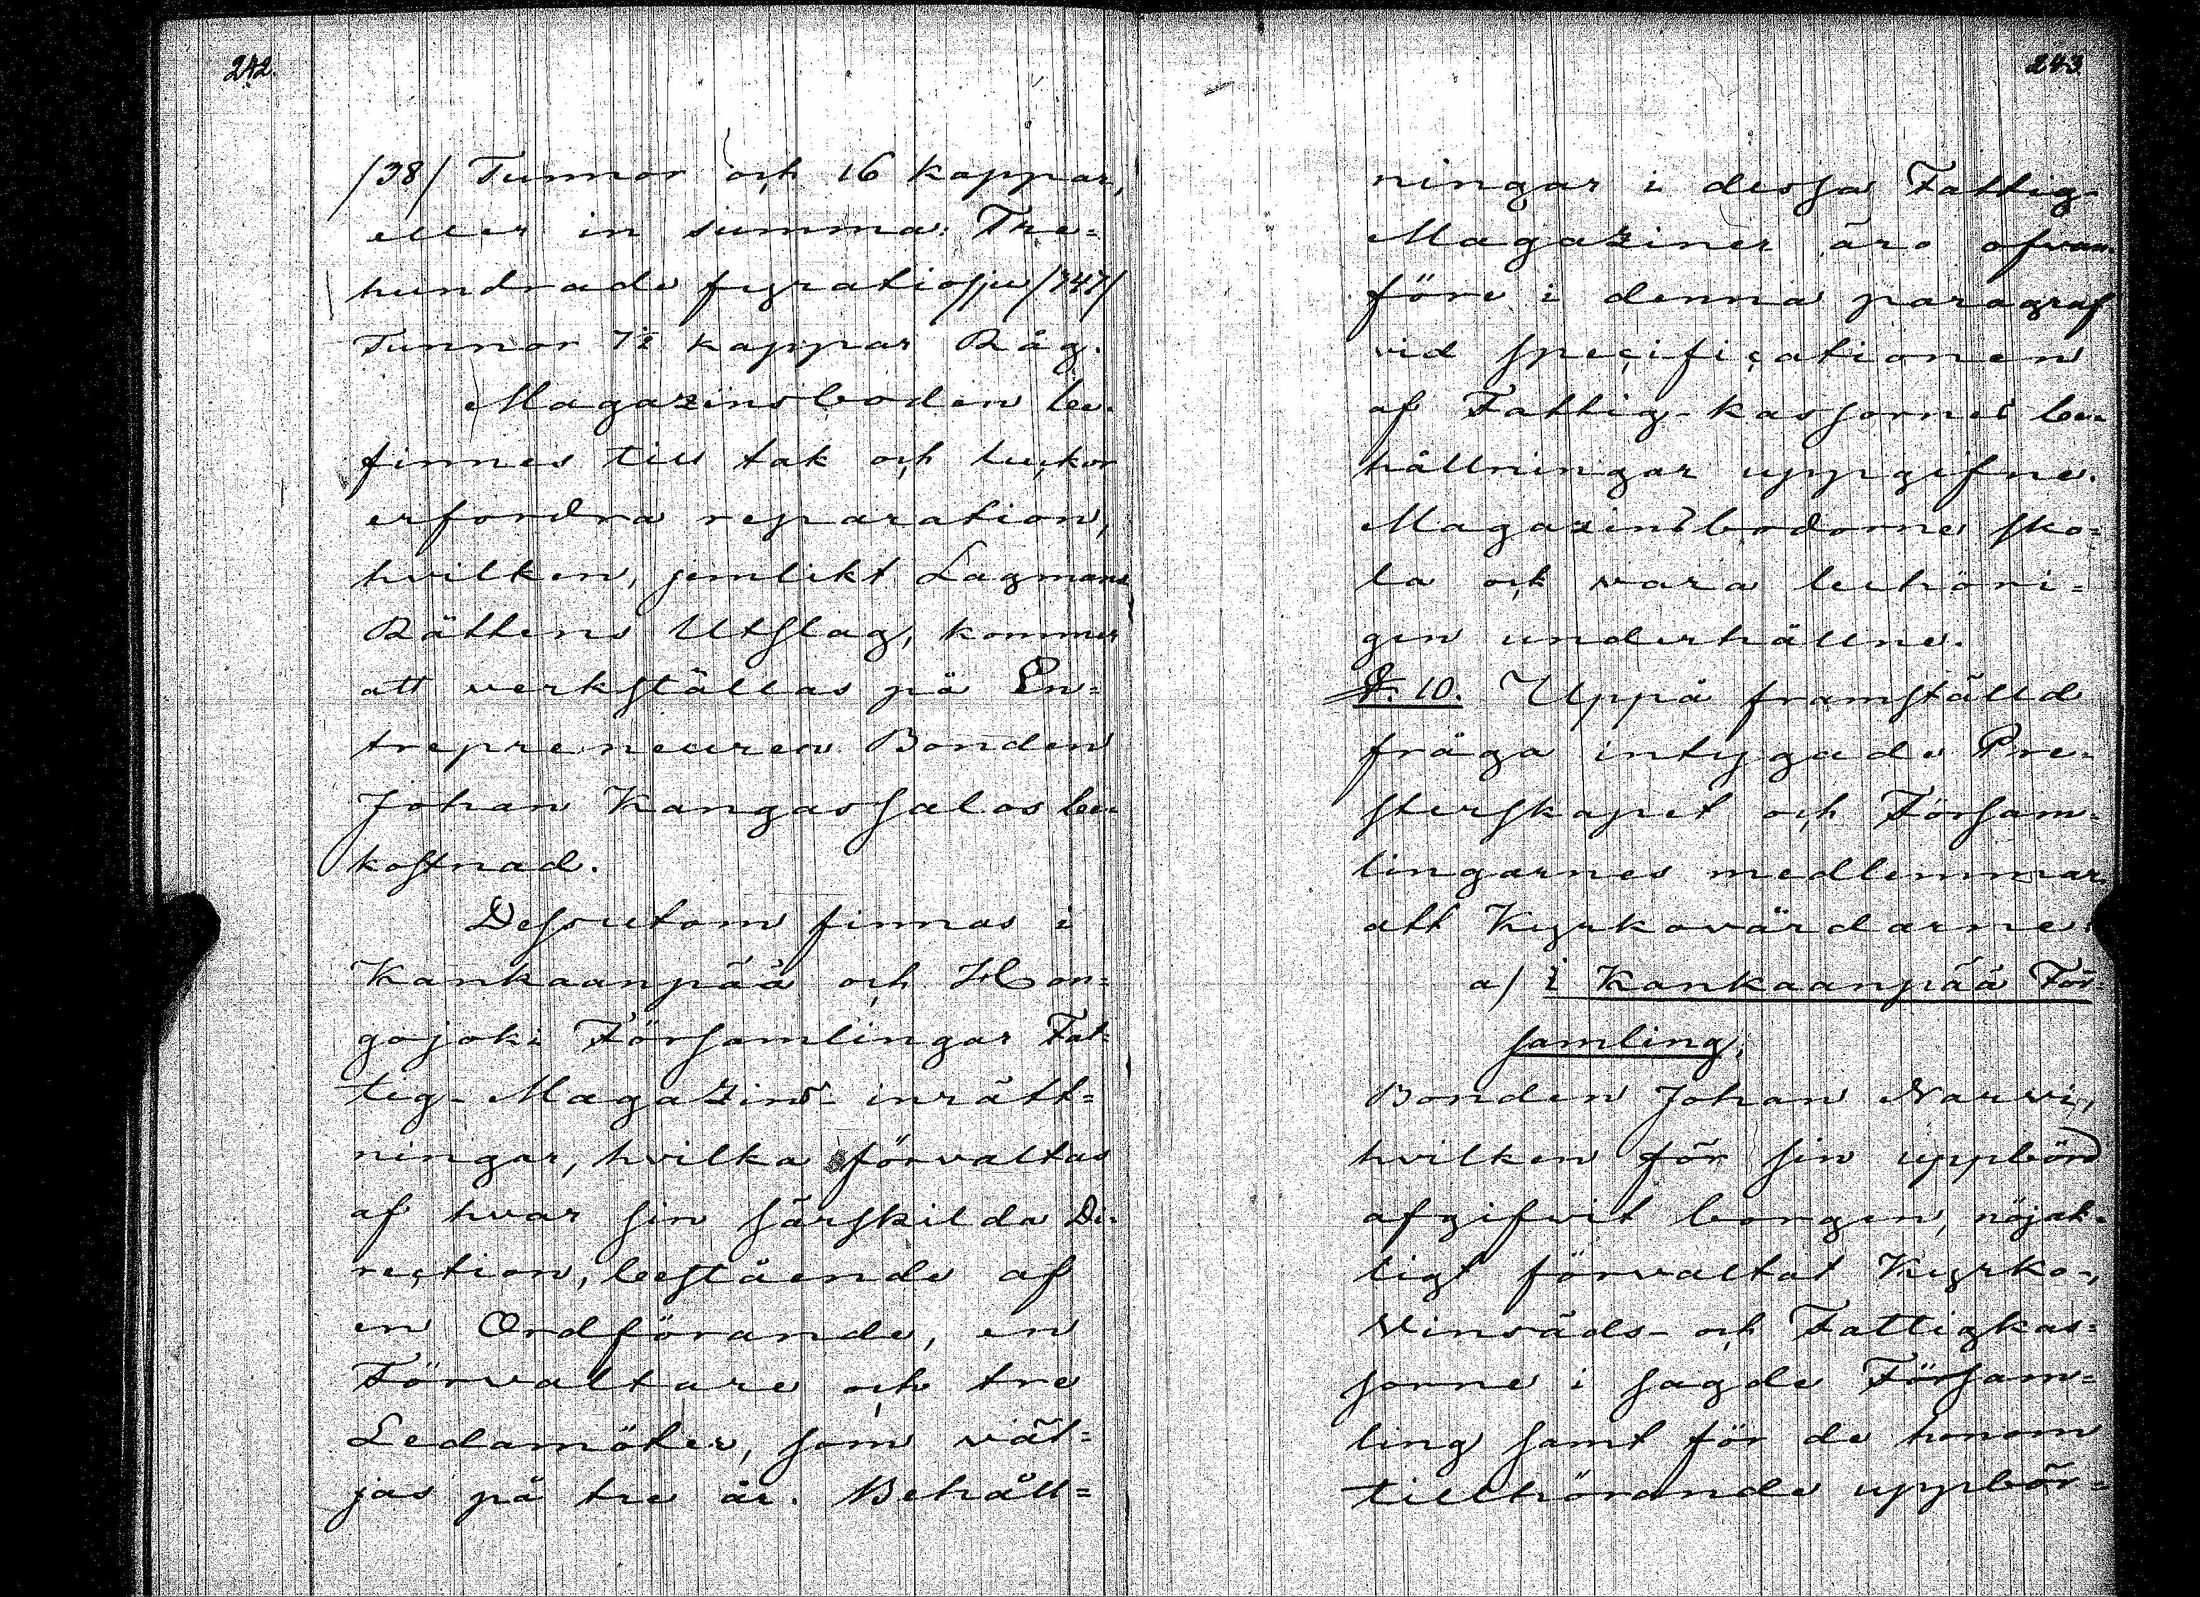 242.
/38/ Tunnor och 16 kappar,
eller in summa: Tre=
hundrade fyratiosju /347/
Tunnor 7½ kappar Råg.
Magazinsboden be-
finnes till tak och luckor
erfordra reparation,
hvilken, jemlikt Lagmans
Rättens Utslag, kommer
att verkställas på En=
trepreneuren Bonden
Johan Kangassalos be-
kostnad.
Dessutom finnas i
Kankaanpää och Hon=
gojoki Församlingar Fat=
tig-Magazins-inrätt=
ningar, hvilka förvaltas
af hvar sin särskilda Di-
rection, bestående af
en Ordförande, en
Förvaltare och tre
Ledamöter, som väl=
jas på tre år. Behåll=
243.
ningar i dessa Fattig-
Magaziner äro ofvan-
före i denna paragraf
vid specificationen
af Fattig-kassornes be-
hållningar uppgifne.
Magazinsbodorne sko=
la ock vara behöri=
gen underhållne.
§. 10. Uppå framställd
fråga intygade Pre-
sterskapet och Försam-
lingarnes medlemmar
att Kyrkovärdarne:
a/ i Kankaanpää För-
samling,
Bonden Johan Narvi,
hvilken för sin uppbörd
afgifvit borgen, nöjak-
ligt förvaltat Kyrko-,
Vinsäds- och Fattigkas=
sorne i sagde Församm=
ling samt för de honom
tillhörande uppbör=